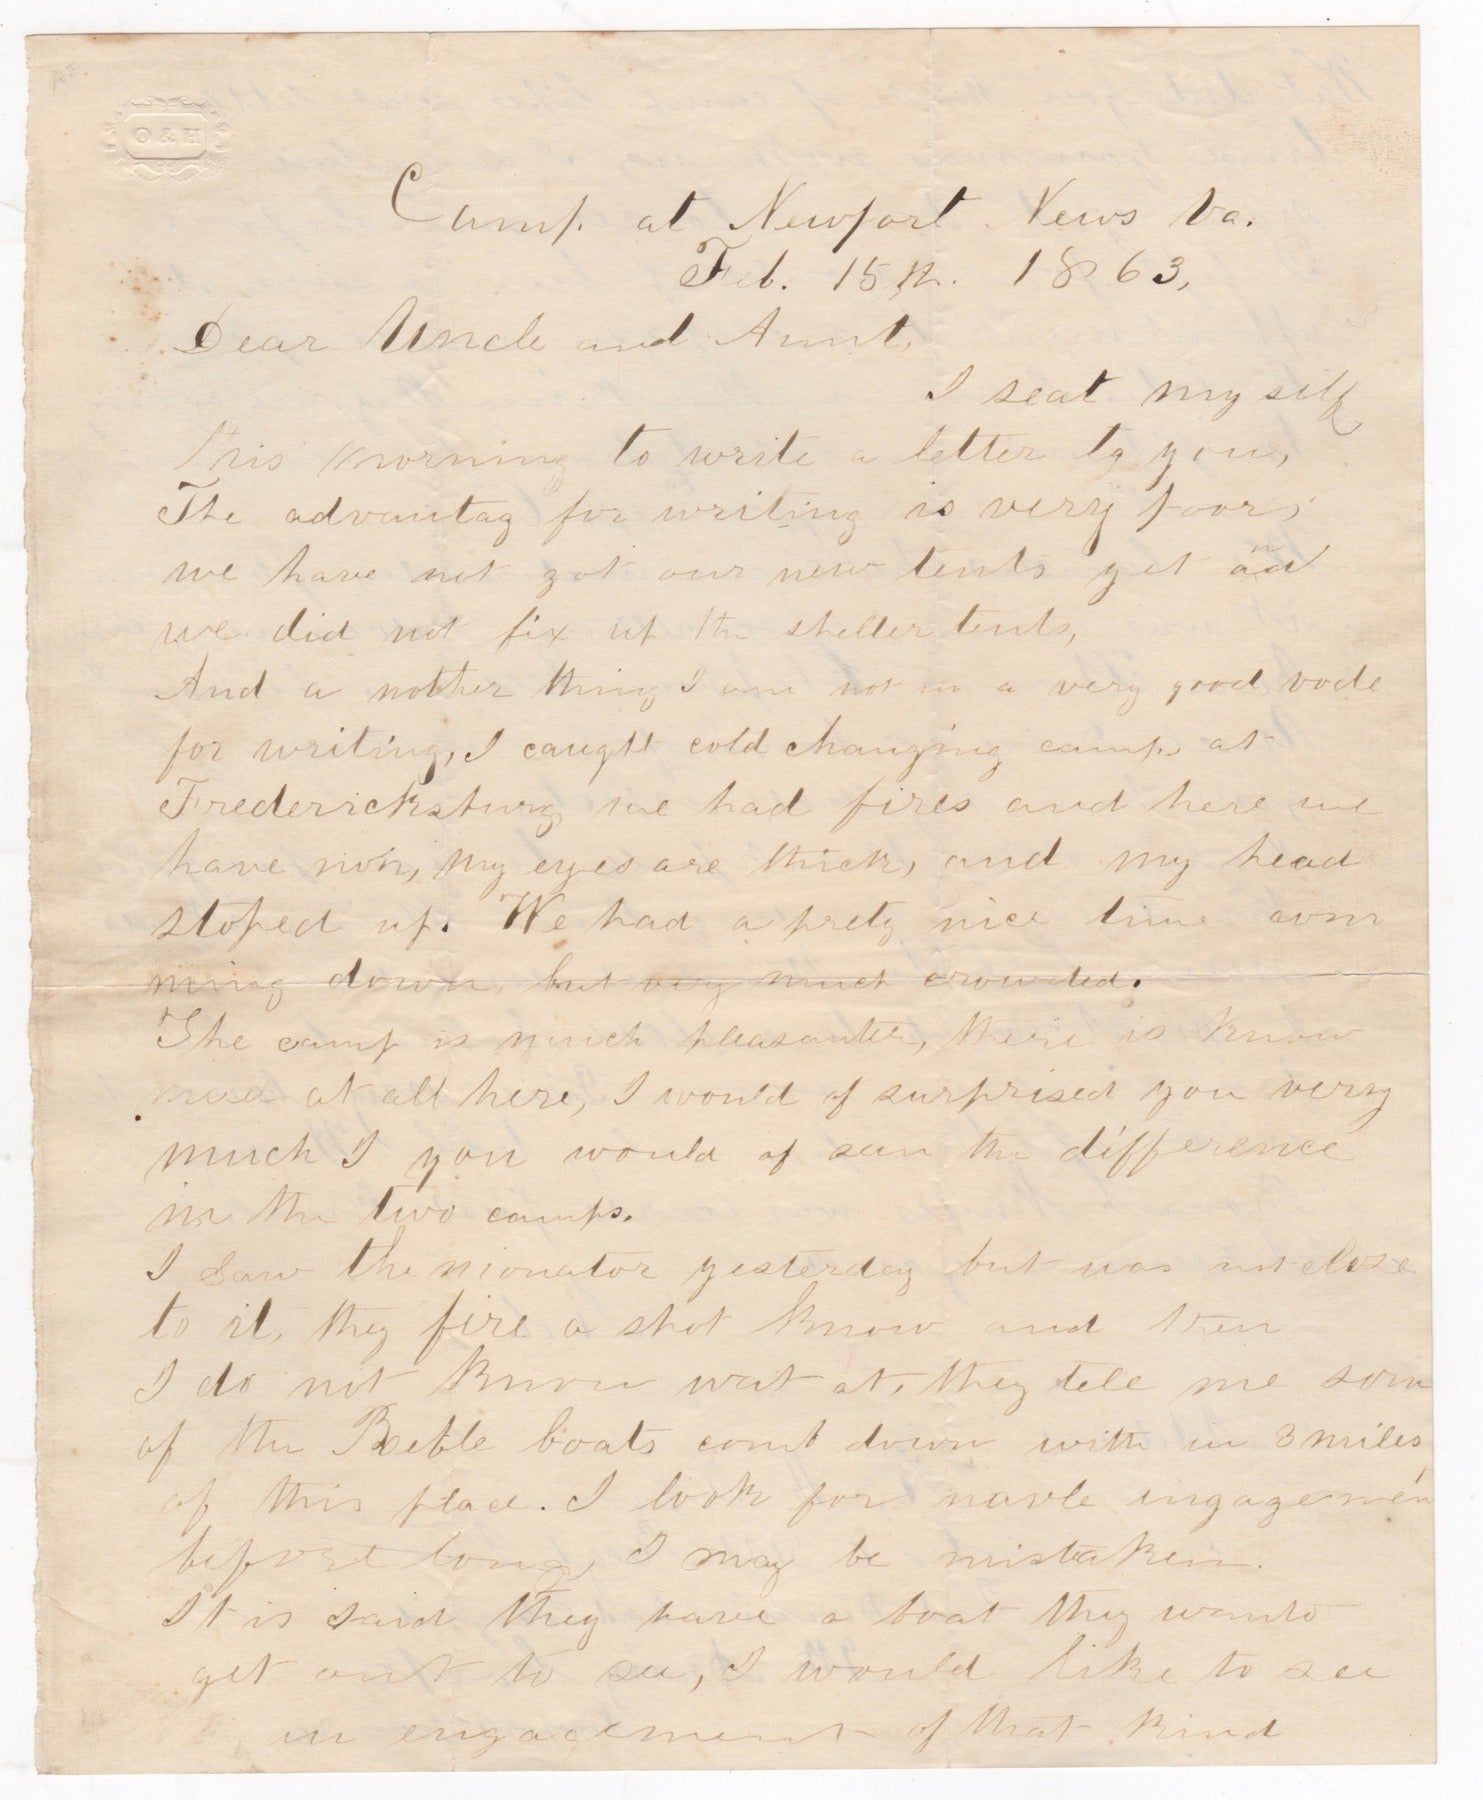 O & H
Camp at Newport News Va.
Feb. 15th. 1863,
Dear Uncle and Aunt,
I seat my self
this morning to write a letter to you,
The advantag for writing is very poor,
we have not got our new tents yet and
we did not fix up the shelter tents,
And a nother thing I am not in a very good vode
for writing, I caught cold changing camp, at
Fredericksburg we had fires and here we
have non, my eyes are thick, and my head
stoped up. We had a prety nice time com
ming down, but very much crowded.
The camp is much pleasanter, there is know
mud at all here, I would of surprised you verry
much I you would of seen the difference
in the two camps.
I saw the monator yesterday but was not close
to it, they fire a shot know and then
I do not know wat at, they tele me som
of the Reble boats comt down with in 3 miles
of this place. I look for navle ingagemen
before long, I may be mistaken.
It is said they have a boat they wanto
get out to see, I would like to see
an engagement of that kind